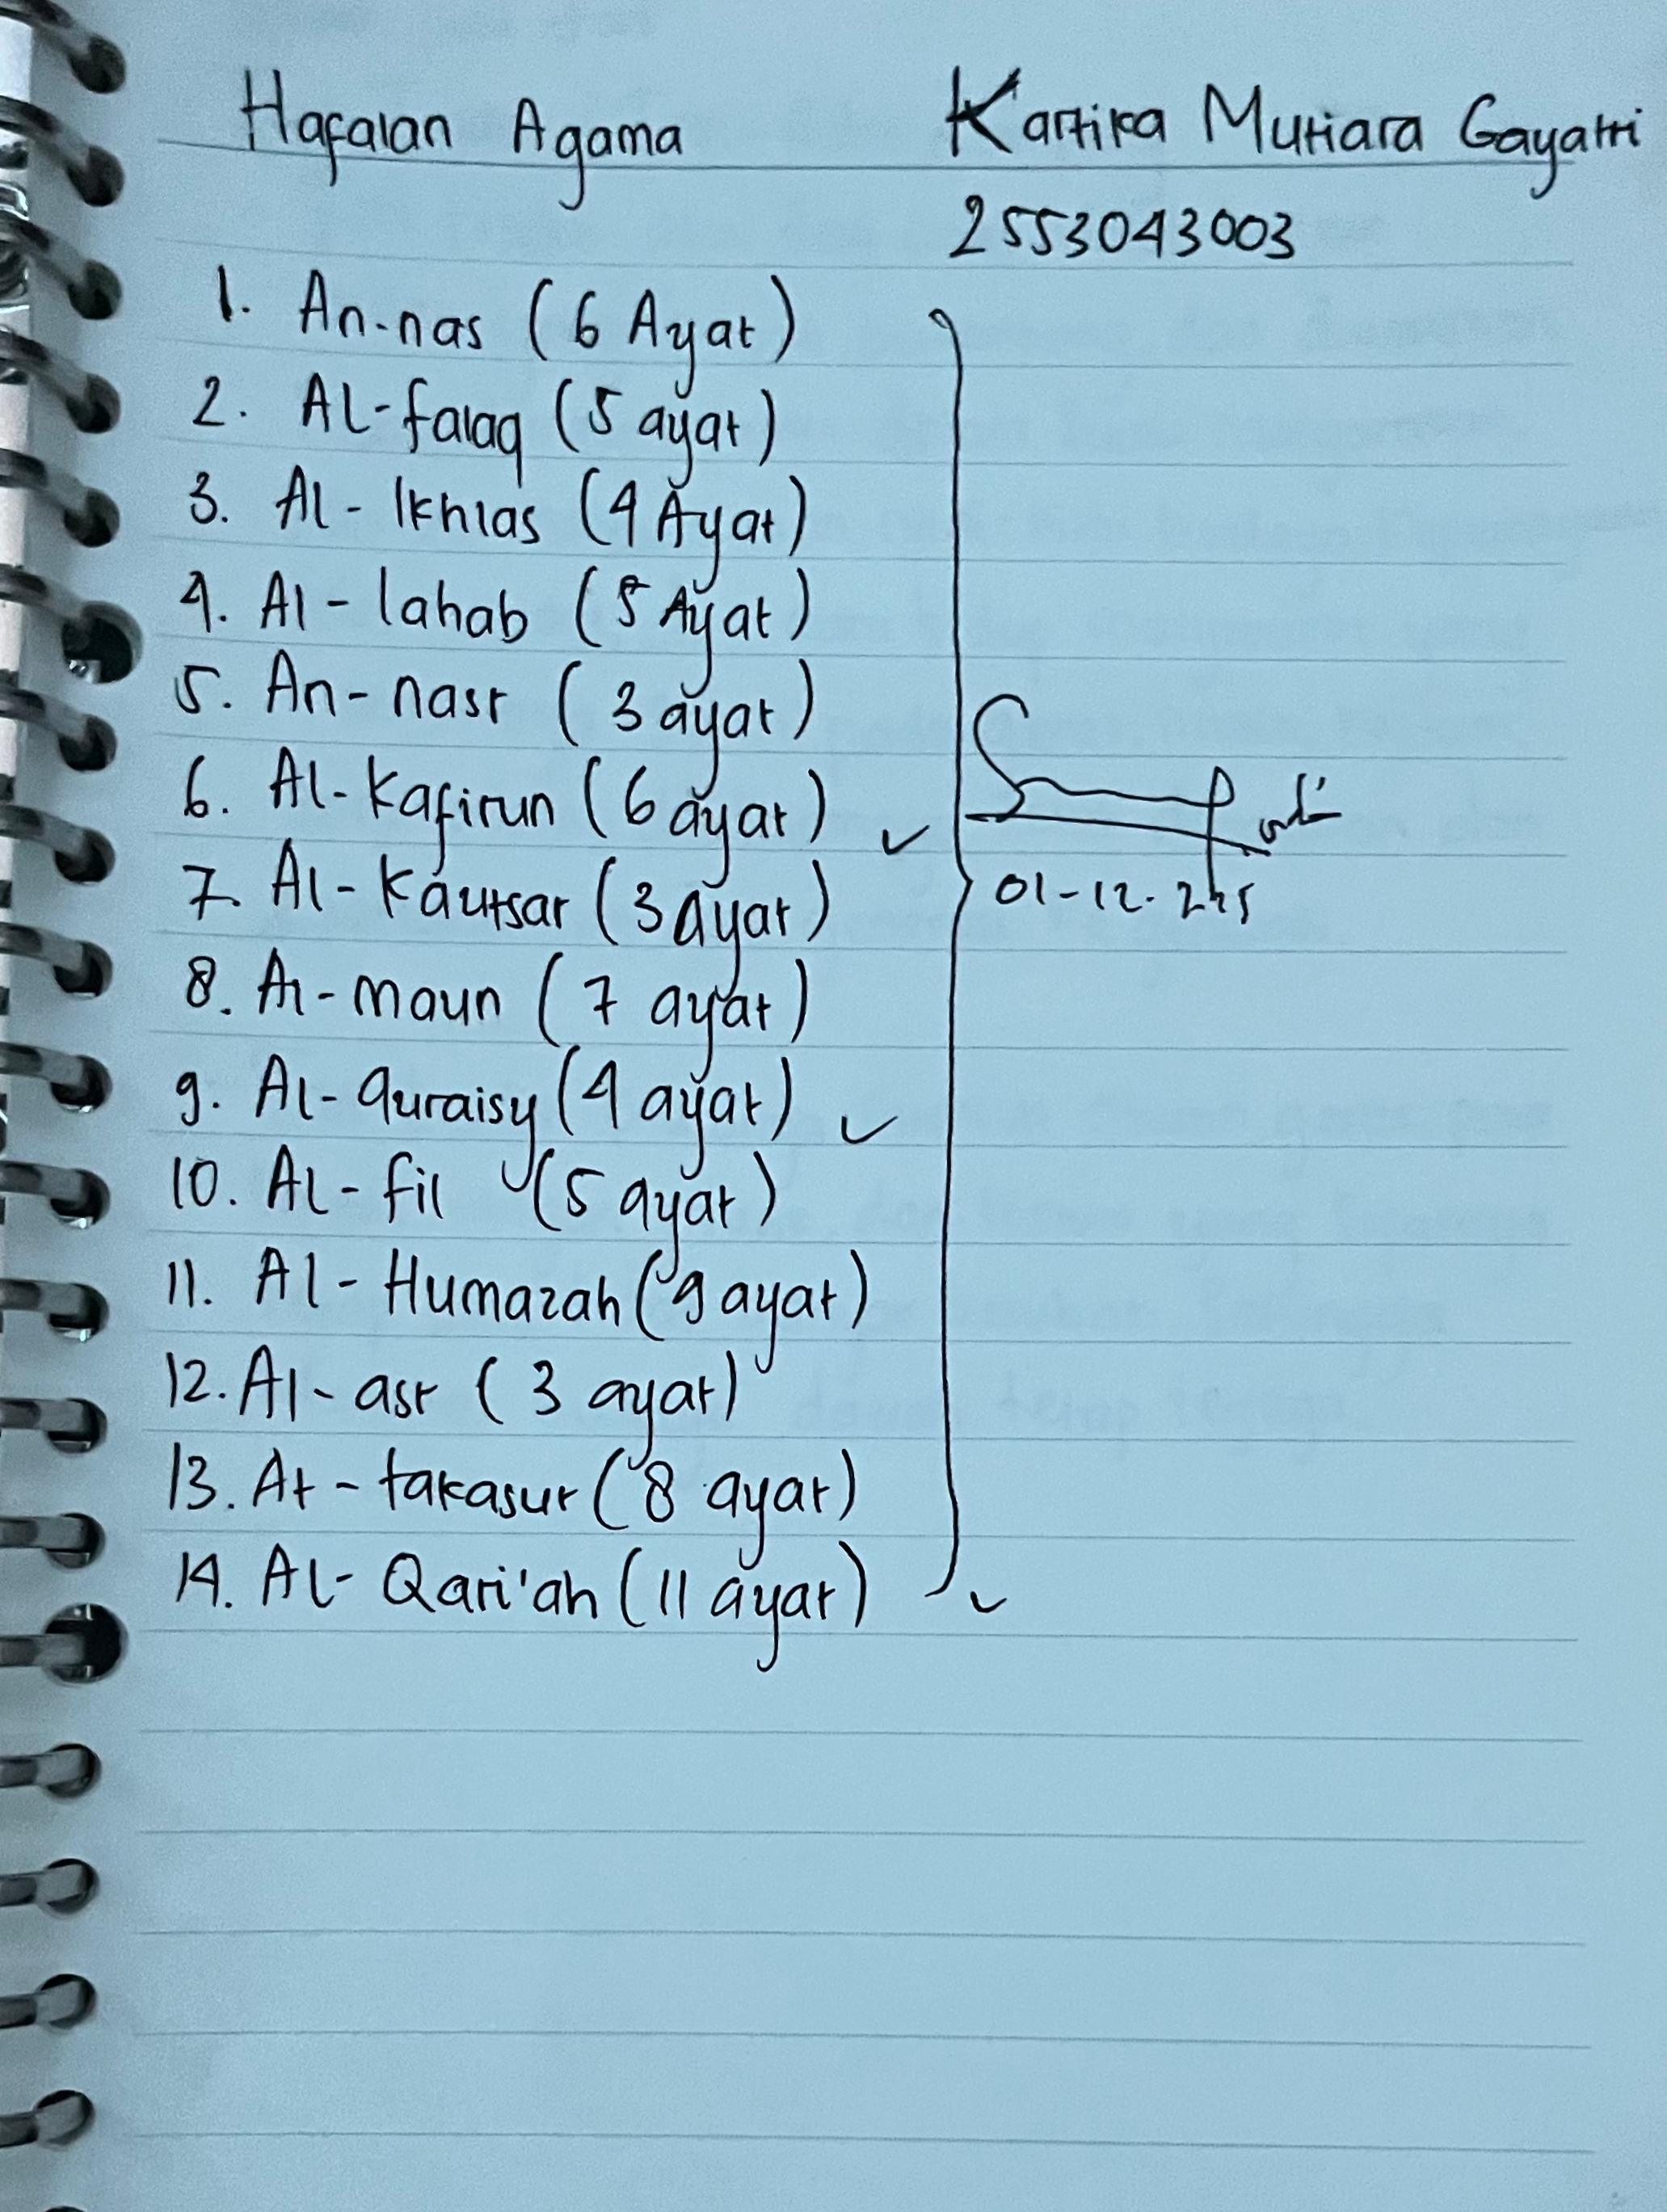 Hafalan Agama
Kartika Mutiara Gayatri
2553043003
1. An-nas (6 Ayat)
2. Al-falaq (5 ayat)
3. Al-Ikhlas (4 Ayat)
4. Al-lahab (5 Ayat)
5. An-nasr (3 ayat)
6. Al-Kafirun (6 ayat) ✓
7. Al-Kautsar (3 Ayat)
8. Al-maun (7 ayat)
9. Al-quraisy (4 ayat) ✓
10. Al-fil (5 ayat)
11. Al-Humazah (9 ayat)
12. Al-asr (3 ayat)
13. At-takasur (8 ayat)
14. Al-Qari'ah (11 ayat) ✓
01-12-